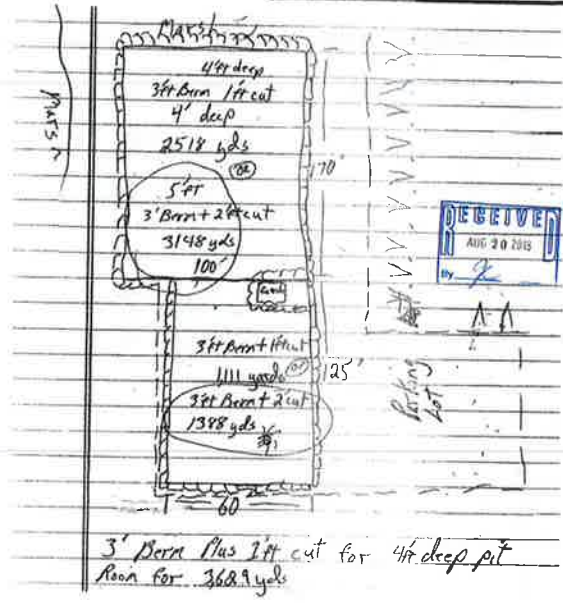 Marsh
Marsh
4ft deep
3ft Berm 1ft cut
4' deep
2518 yds
or
170'
5'ft
3' Berm + 2ft cut
3148 yds
100'
RECEIVED
AUG 20 2013
By
3ft Berm + 1ft cut
1111 yards or
125'
3ft Berm + 2' cut
1388 yds
Parking
Lot
60
3' Berm Plus 1'ft cut for 4ft deep pit
Room for 3689 yds